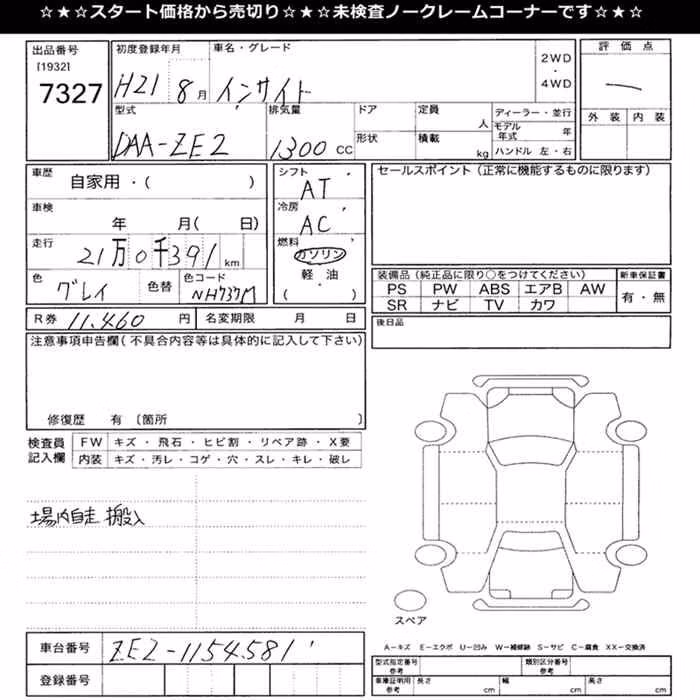 ☆★☆スタート価格から売切り☆★☆未検査ノークレームコーナーです☆★☆
出品番号 初度登録年月 車名・グレード 評価点
[1932] 2WD
7327 H21 8月 インサイト ・ 4WD ―
外装 内装
型式 排気量 ドア 定員 人 ディーラー・並行
モデル年式 年
DAA-ZE2 1300 CC 形状 積載 kg ハンドル 左・右
車歴 自家用・( ) シフト AT セールスポイント(正常に機能するものに限ります)
車検 年 月( 日) 冷房 AC
走行 21万0千391 km 燃料 ガソリン
軽・油
( ・ )
色 グレイ 色替 色コード NH737M
装備品(純正品に限り○をつけてください) 新車保証書
PS PW ABS エアB AW 有・無
SR ナビ TV カワ
R券 11,460 円 名変期限 月 日 後日品
注意事項申告欄(不具合内容等は具体的に記入して下さい)
修復歴 有 〔箇所 〕
検査員 FW キズ・飛石・ヒビ割・リペア跡・X要
記入欄 内装 キズ・汚レ・コゲ・穴・スレ・キレ・破レ
場内自走 搬入
スペア
車台番号 ZE2-1154581
A−キズ E−エクボ U−凹み W−補修跡 S−サビ C−腐食 XX−交換済
登録番号
型式指定番号 参考 類別区分番号 参考
車庫証明用 参考 長さ cm 幅 cm 高さ cm